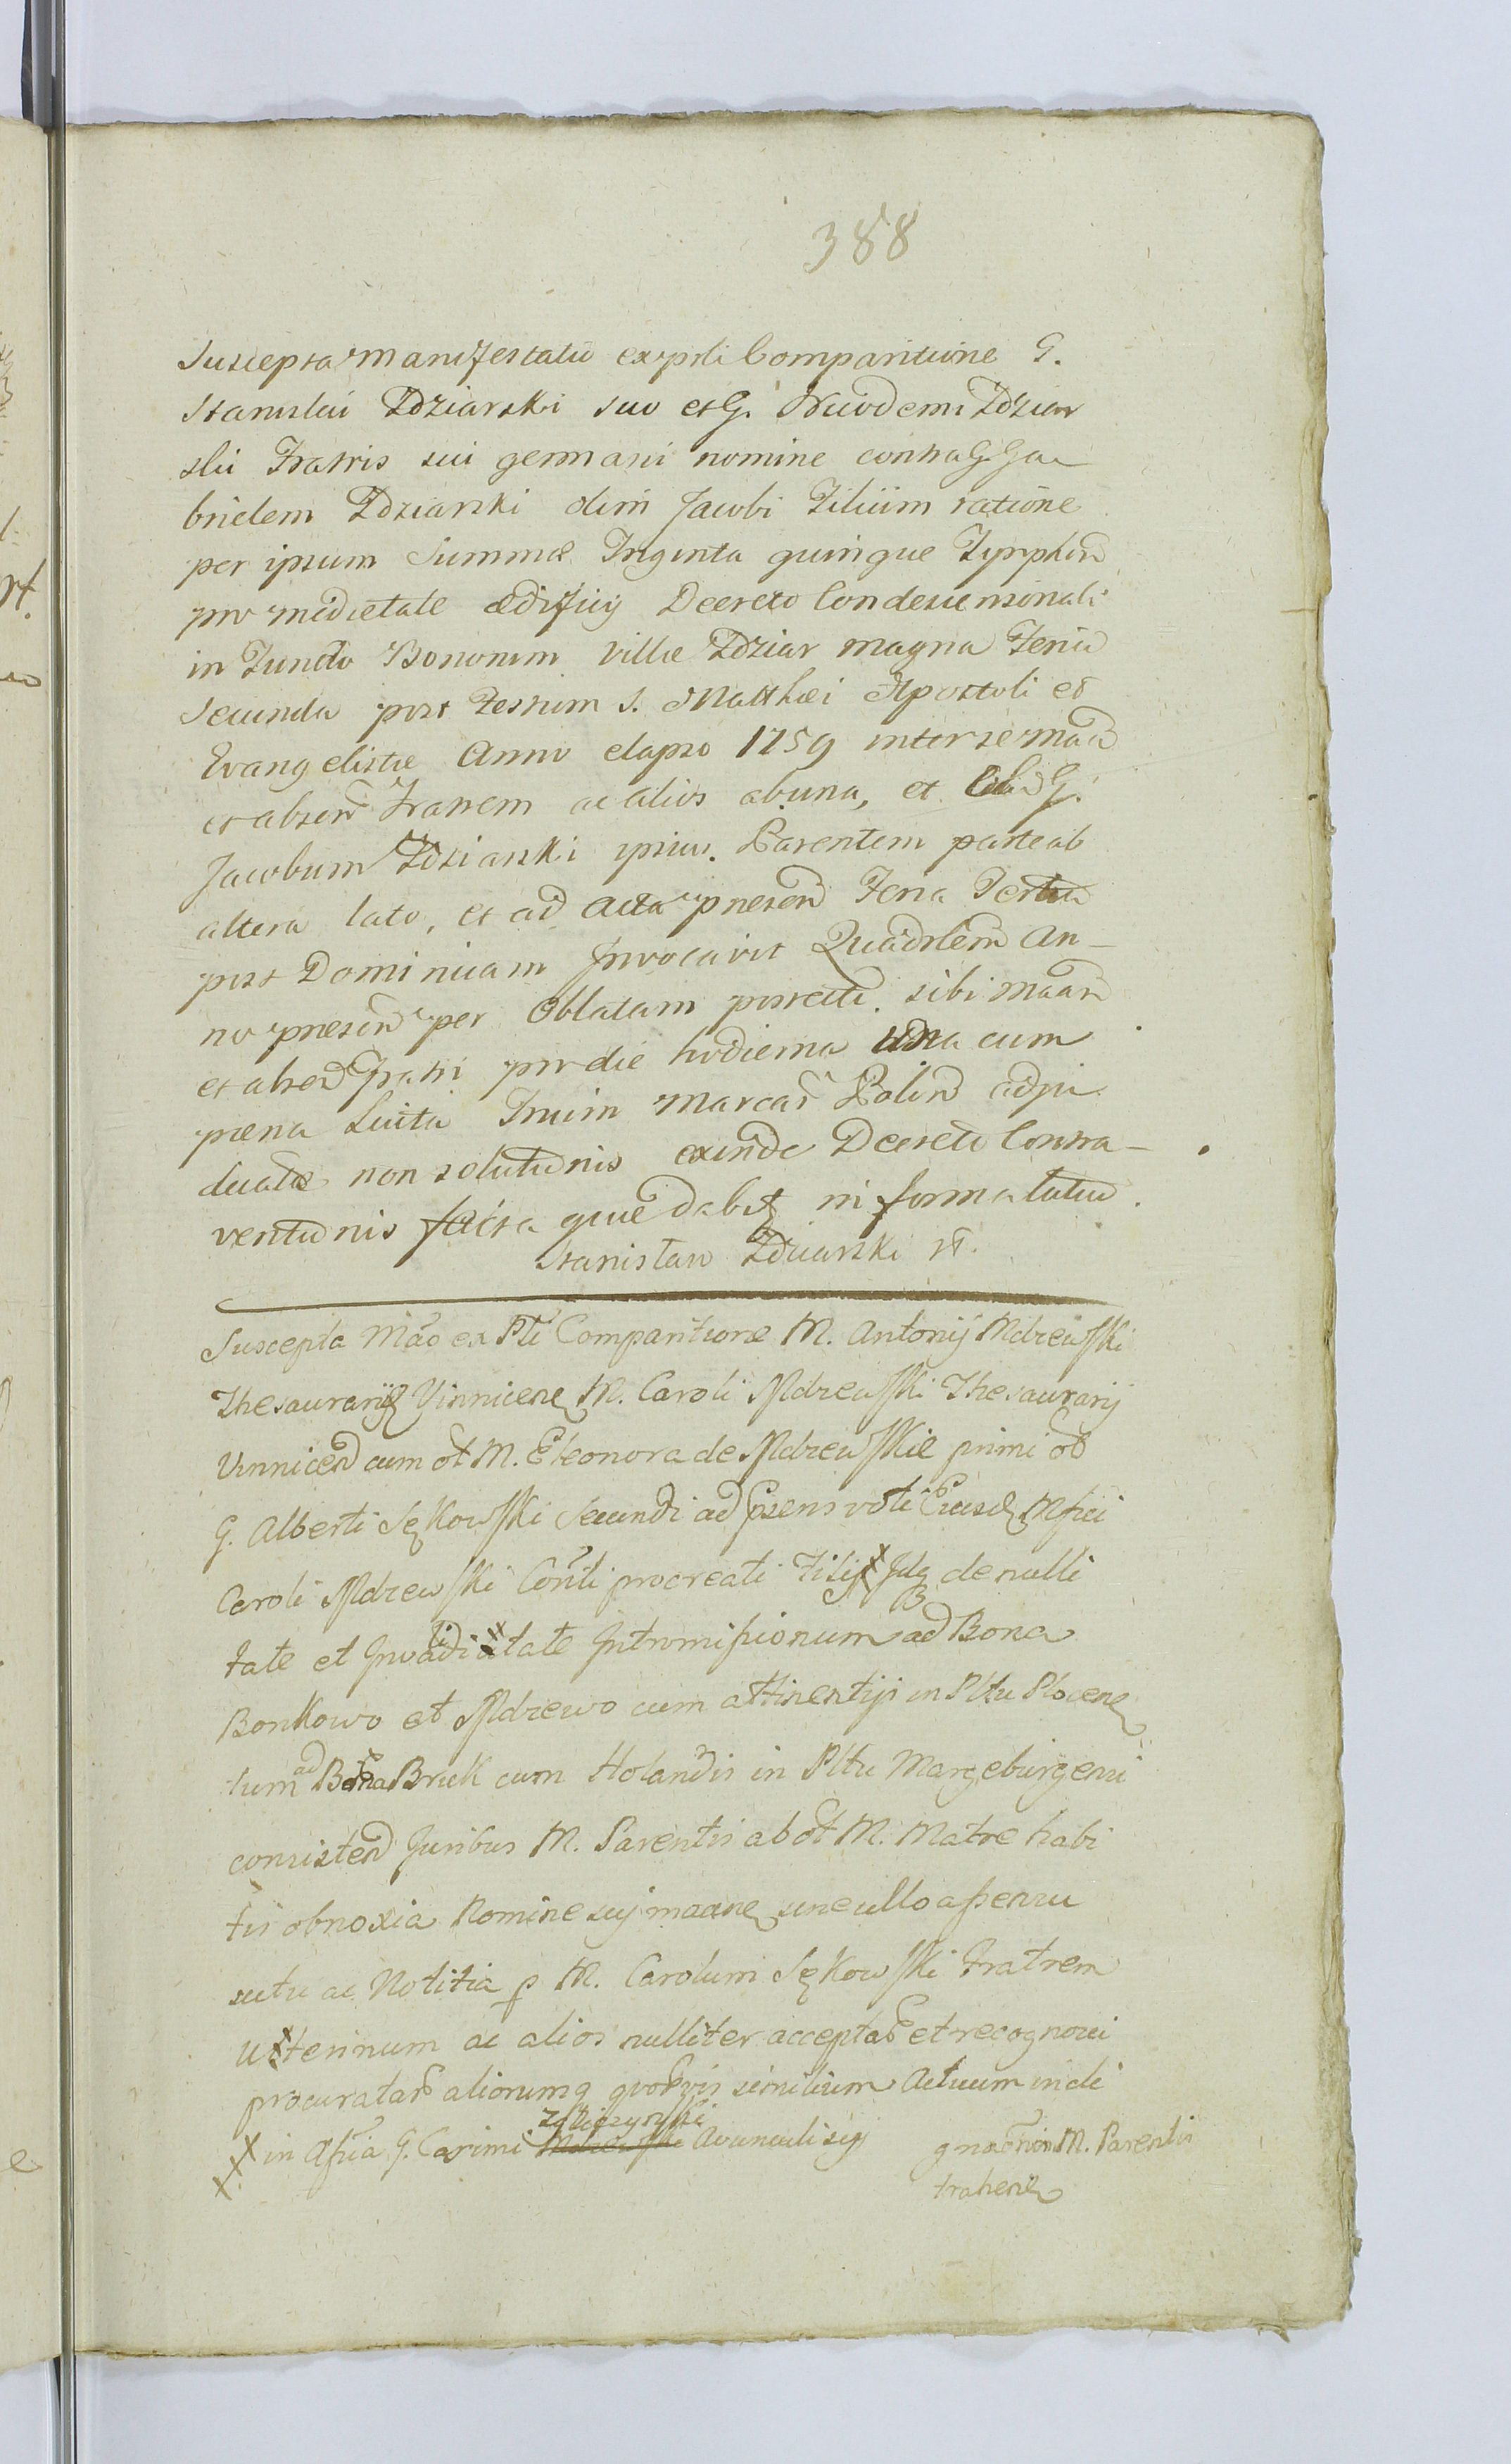 388
Suscepta Manifestatio ex psti Comparitione G.
Stanislai Zdziarski suo et G. Nicodemi Zdziar
skii Fratris sui germani nomine contra G. Ga
brielem Zdziarski olim Jacobi Filium ratione
per ipsum Summæ Triginta quinque Tynphor̃
pro medietate ædificij Decreto Condescensionali
in Fundo Bonorum Villæ Zdziar magna Feria
Secunda post Festum S. Matthæi Apostoli et
Evangelistæ Anno elapso 1759 inter se
et absen Fratrem ac alios ab una, et G.
Jacobum Zdziarski ipsius Parentem parte ab
altera lato, et ad Acta præsen Feria Tertia
post Dominicam Invocavit Quadrlem An-
no præsen per Oblatam porrecto sibi
et absen Fratri pro die hodierna una cum
pæna Luita Trium Marcar̃ Polin adju
dicatæ non solutionis exinde Decreto Contra-
ventionis facta quæ dabit informatiua
Stanisław Zdziarski
Suscepta Mão ex Psti Comparitione M. Antonij Mdzewski
Thesaurarij Vinnicen M. Caroli Mdzewski Thesaurarij
Vinnicen cum ol M. Eleonora de Mdzewskie primi ol
G. Alberti Sękowski Secundi ad psens voti Eiusd Mfici
Caroli Mdzewski procreati Filij de nulli
tate et Invalidi tate Intromissionum ad Bona
Bonkowo et Mdzewo cum attinentijs in Pltu Plocen
tum ad Bona Bruk cum Holandis in Pltu Margeburgensi
consisten Juribus M. Parentis ab ol M. Matre habi
tis obnoxia Nomine suj sine ullo assensu
scitu ac Notitia p M. Carolum Sękowski Fratrem
Uterinum ac alios nulliter acceptar̃ et recognosci
procuratar̃ aliorumq quorvis similium Actuum indi
x in Assia G. Avunculi suj gnãonis M. Parentis
x trahen